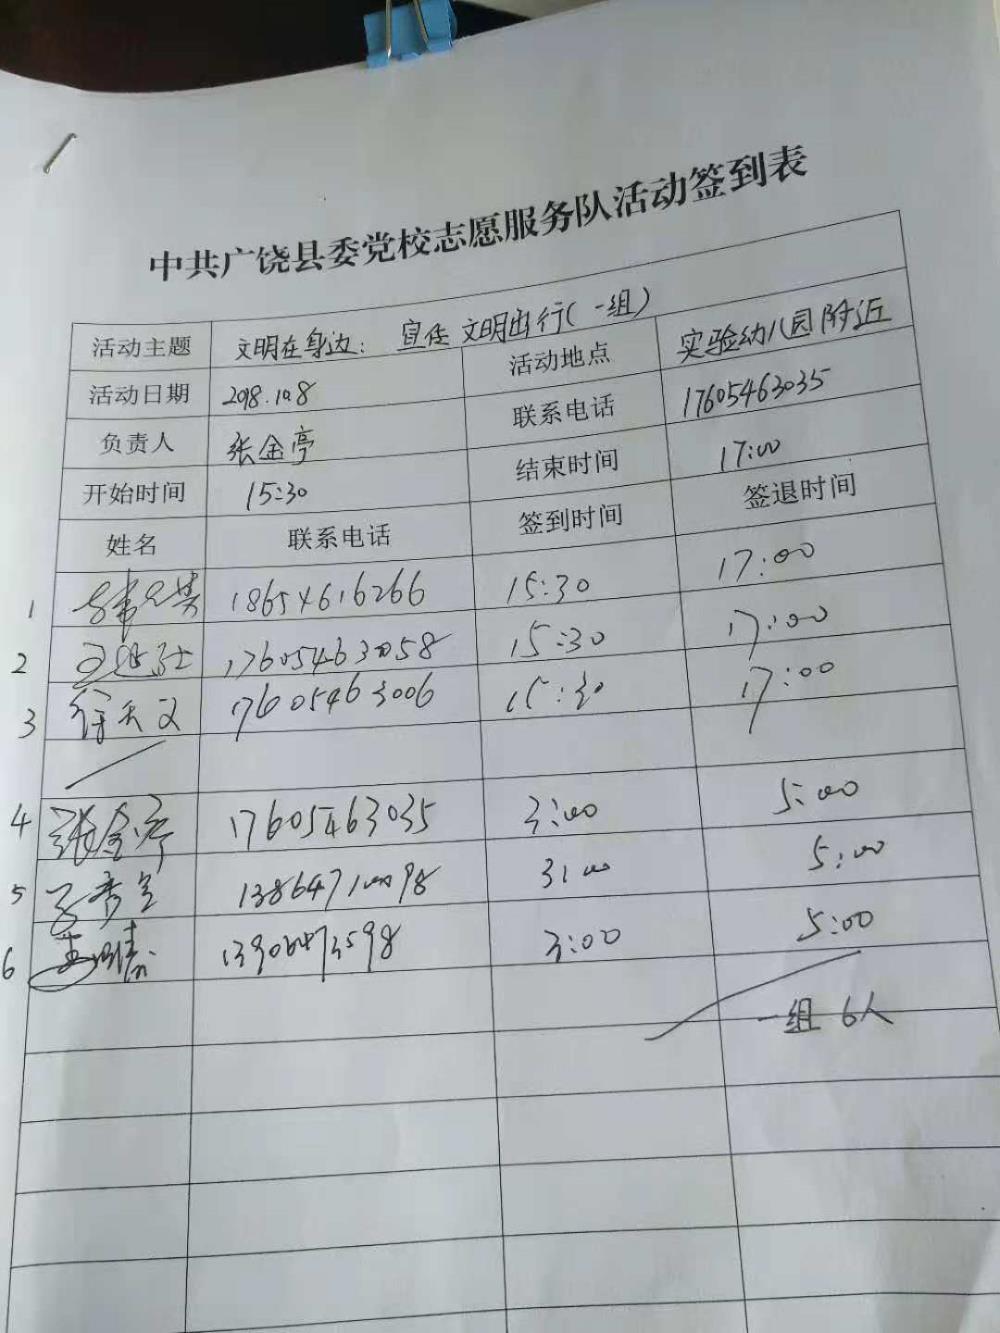 中共广饶县委党校志愿服务队活动签到表
活动主题 文明在身边：宣传文明出行（一组）
活动日期 2018.10.8 活动地点 实验幼儿园附近
负责人 张金亭 联系电话 17605463035
开始时间 15:30 结束时间 17:00
姓名 联系电话 签到时间 签退时间
1 18654616266 15:30 17:00
2 17605463058 15:30 17:00
3 徐天文 17605463006 15:30 17:00
4 张金亭 17605463035 3:00 5:00
5 13864710098 3:00 5:00
6 3:00 5:00
一组 6人